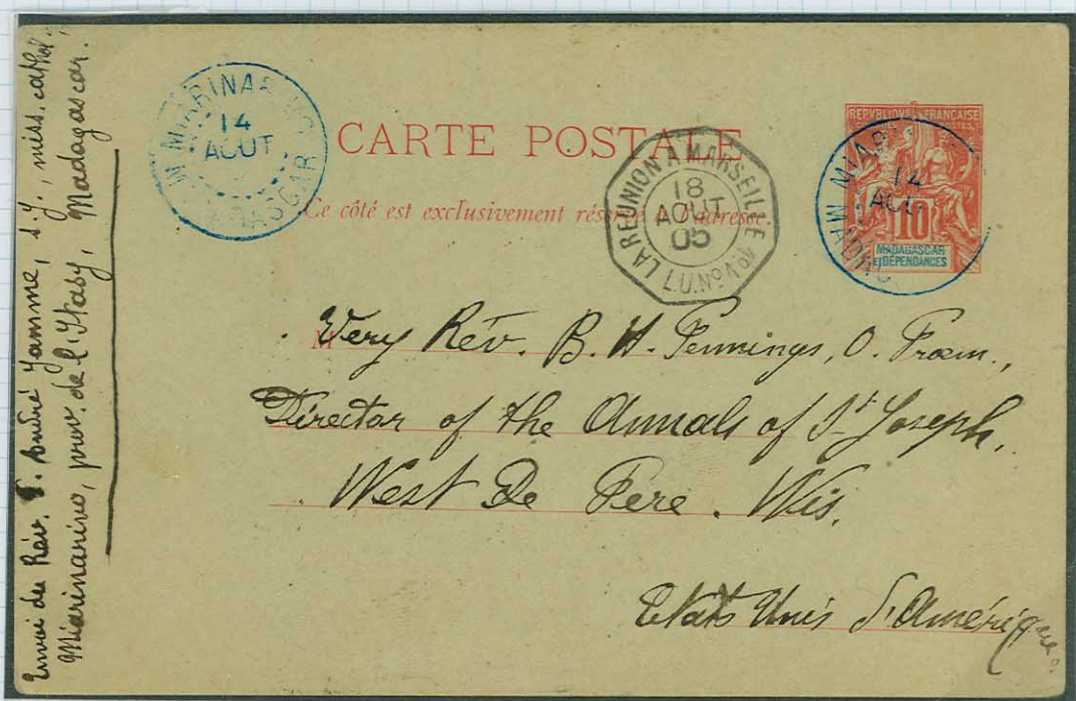 Envoi du Rév. P. André Jamme, S. J., miss. cathol.,
Miarinarivo, prov. de l'Itasy, Madagascar.
MIARINARIVO
14
AOUT
MADAGASCAR
CARTE POSTALE
Ce côté est exclusivement réservé à l'adresse.
LA RÉUNION A MARSEILLE
18
AOUT
05
L.U.Nº
REPVBLIQVE FRANÇAISE
POSTES
10
MADAGASCAR
ET DÉPENDANCES
14
AOU
M
Very Rév. B. H. Pennings, O. Præm.,
Director of the Annals of St Joseph,
West De Pere. Wis.
Etats Unis d'Amérique.